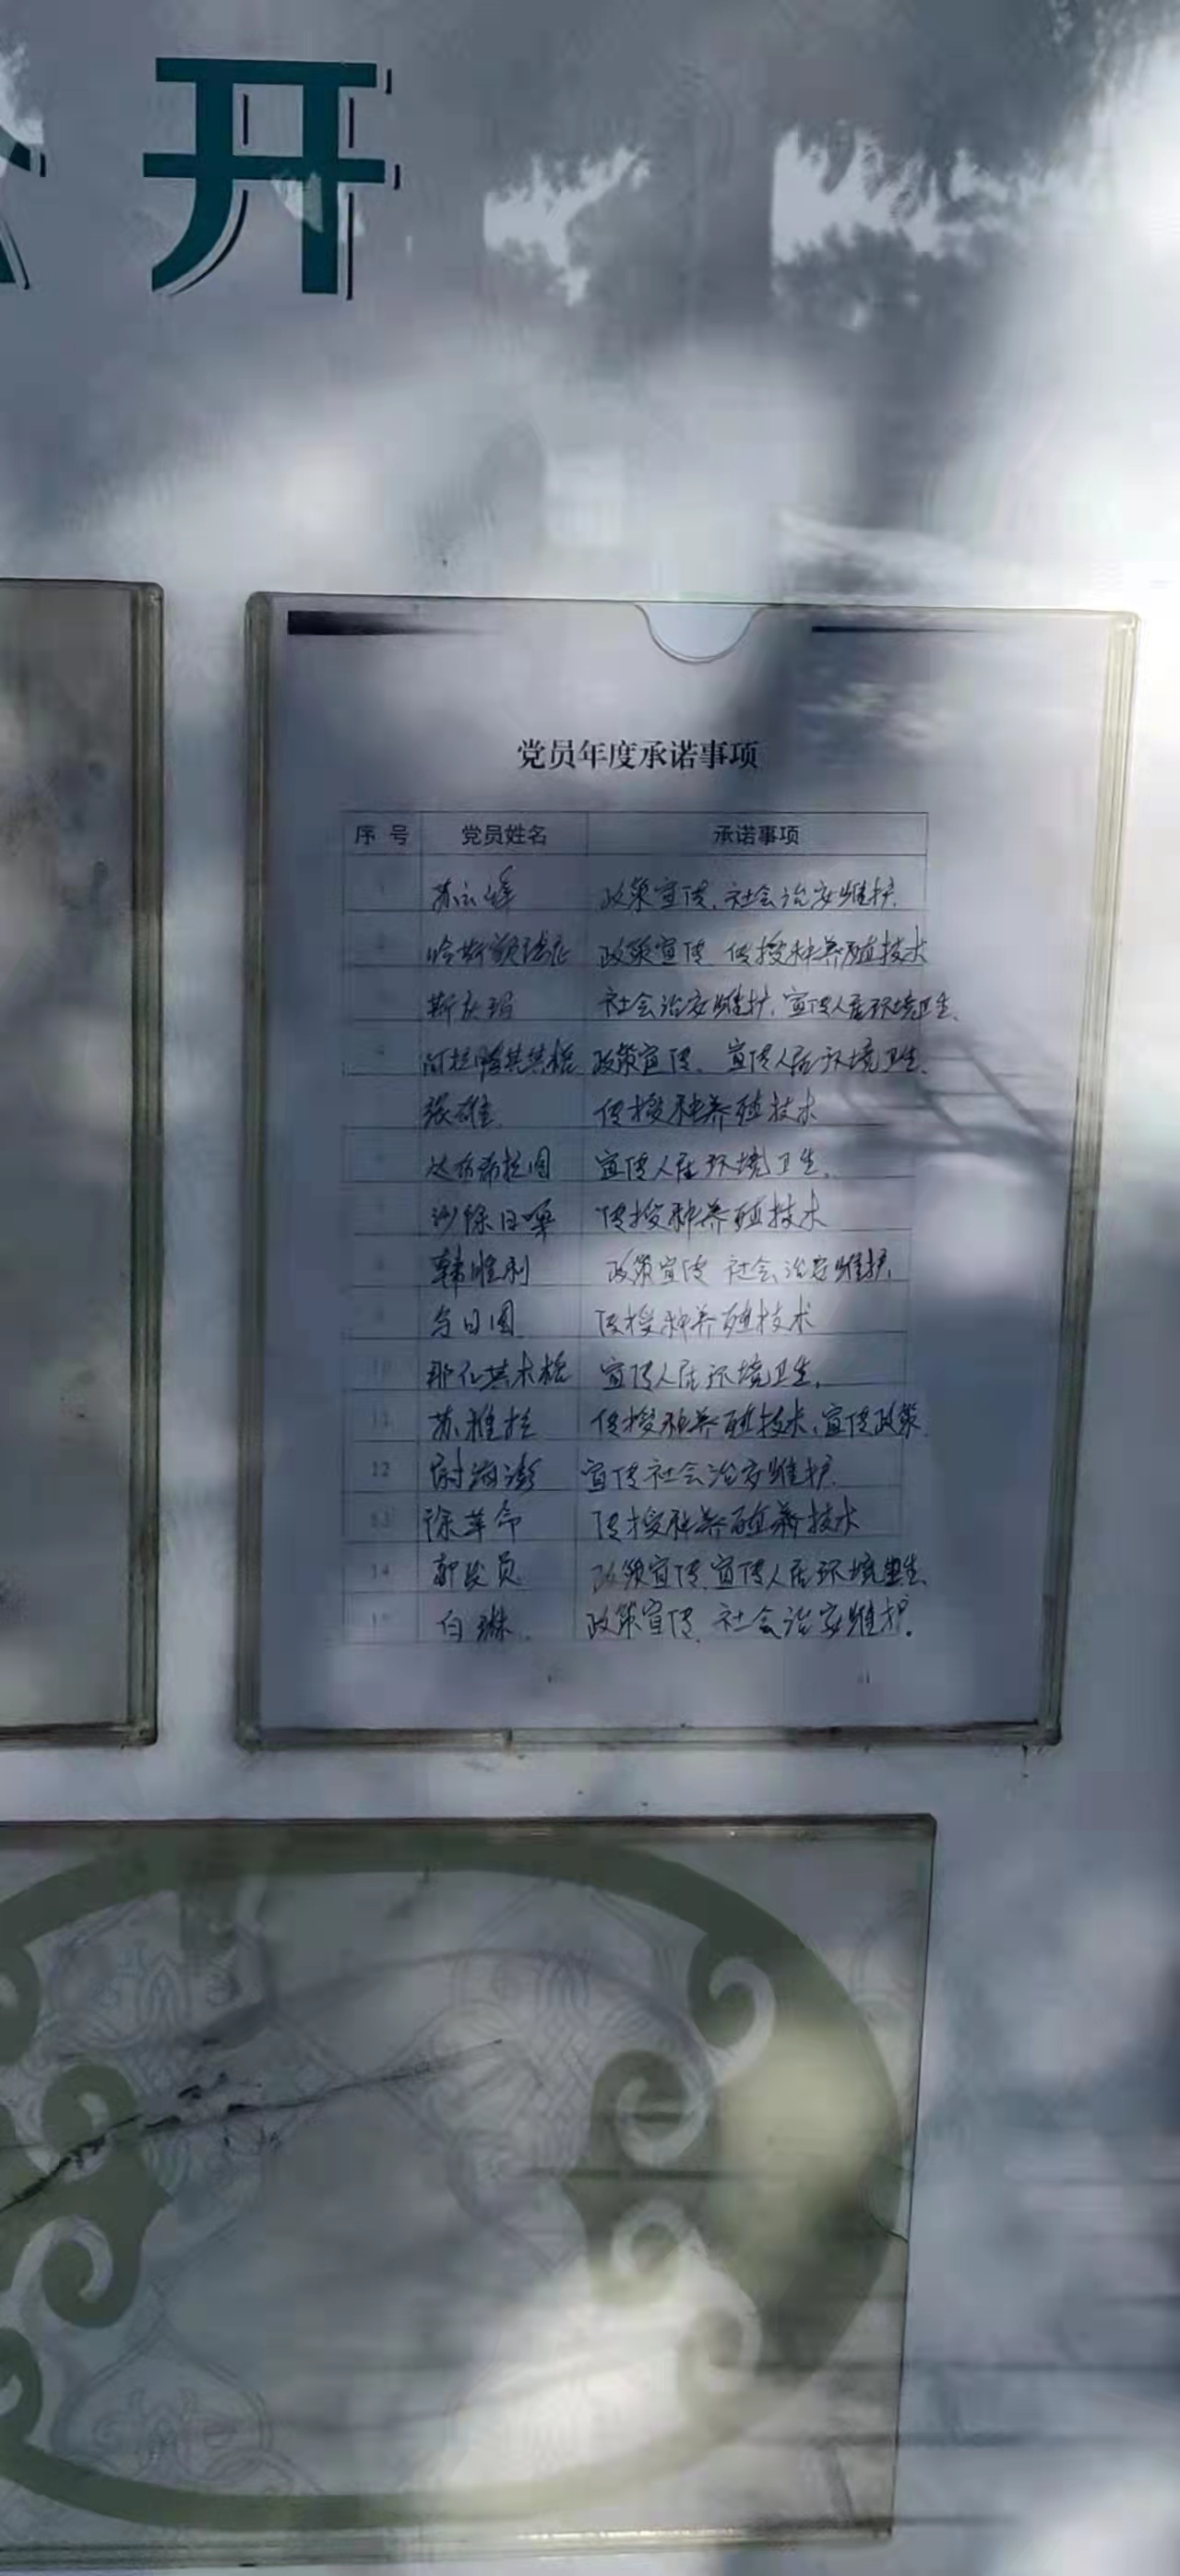 开
党员年度承诺事项
序号 党员姓名 承诺事项
政策宣传、社会治安维护.
政策宣传 传授种养殖技术
斯庆玛 社会治安维护、宣传人居环境卫生、
政策宣传、宣传人居环境卫生、
张雄 传授种养殖技术
达布希拉图 宣传人居环境卫生、
传授种养殖技术
韩胜利 政策宣传 社会治安维护、
乌日图 传授种养殖技术
10 那仁其木格 宣传人居环境卫生、
11 苏雅拉 传授种养殖技术、宣传政策
12 宣传社会治安维护、
13 徐革命 传授种养殖技术
14 政策宣传、宣传人居环境卫生、
15 白琳 政策宣传、社会治安维护。